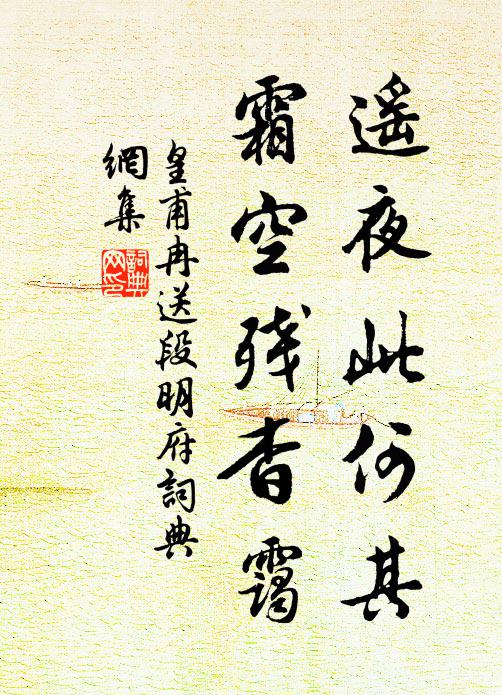 遥夜此何其
霜空残杳霭
皇甫冉送段明府詞典
網集
詞典
网印